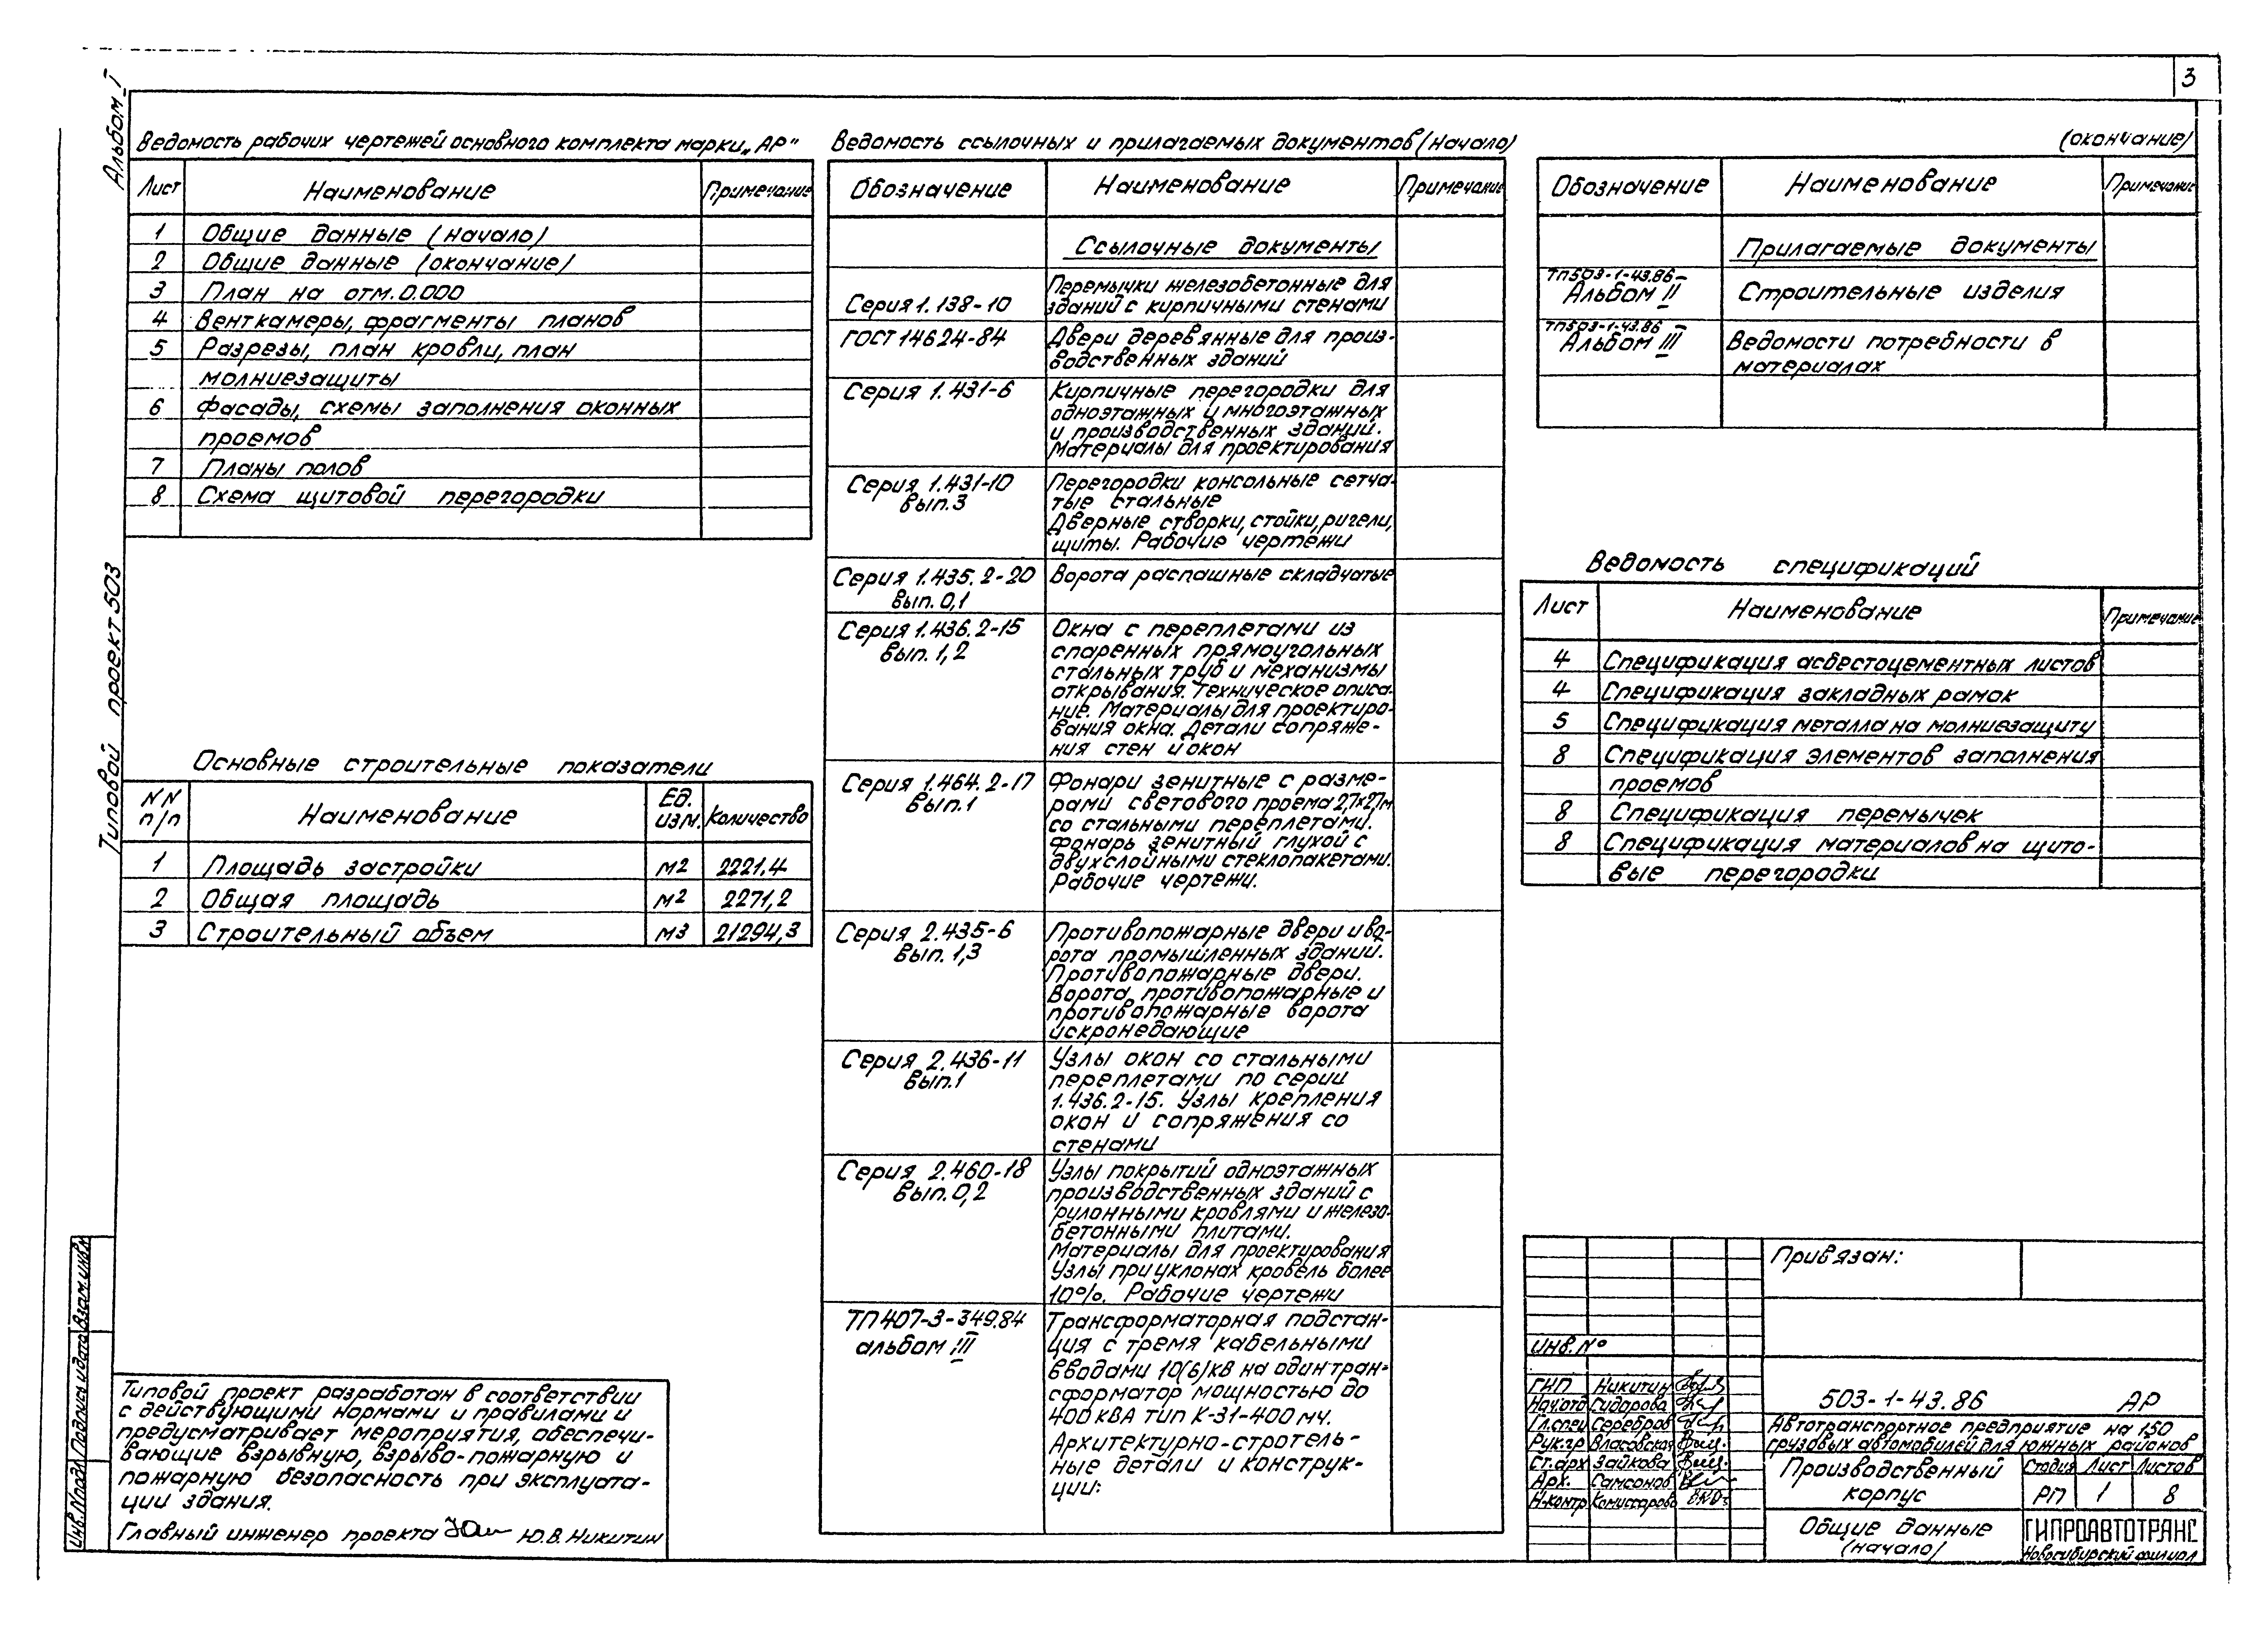 3
Альбом I
Типовой проект 503
Ведомость рабочих чертежей основного комплекта марки „АР"
Лист Наименование Примечание
1 Общие данные (начало)
2 Общие данные (окончание)
3 План на отм. 0.000
4 Венткамеры, фрагменты планов
5 Разрезы, план кровли, план
молниезащиты
6 Фасады, схемы заполнения оконных
проемов
7 Планы полов
8 Схема щитовой перегородки
Основные строительные показатели
NN п/п Наименование Ед. изм. Количество
1 Площадь застройки м2 2221,4
2 Общая площадь м2 2271,2
3 Строительный объем м3 21294,3
Типовой проект разработан в соответствии
с действующими нормами и правилами и
предусматривает мероприятия, обеспечи-
вающие взрывную, взрыво-пожарную и
пожарную безопасность при эксплуата-
ции здания.
Главный инженер проекта Ю.В. Никитин
Ведомость ссылочных и прилагаемых документов (начало)
Обозначение Наименование Примечание
Ссылочные документы
Серия 1.138-10
Перемычки железобетонные для
зданий с кирпичными стенами
ГОСТ 14624-84
Двери деревянные для произ-
водственных зданий
Серия 1.431-6
Кирпичные перегородки для
одноэтажных и многоэтажных
и производственных зданий.
Материалы для проектирования
Серия 1.431-10
вып.3
Перегородки консольные сетча-
тые стальные
Дверные створки, стойки, ригели,
щиты. Рабочие чертежи
Серия 1.435.2-20
вып. 0,1
Ворота распашные складчатые
Серия 1.436.2-15
вып. 1,2
Окна с переплетами из
спаренных прямоугольных
стальных труб и механизмы
открывания. Техническое описа-
ние. Материалы для проектиро-
вания окна. Детали сопряже-
ния стен и окон
Серия 1.464.2-17
вып.1
Фонари зенитные с разме-
рами светового проема 2,7х2,7м
со стальными переплетами.
Фонарь зенитный глухой с
двухслойными стеклопакетами.
Рабочие чертежи.
Серия 2.435-6
вып. 1,3
Противопожарные двери и во-
рота промышленных зданий.
Противопожарные двери.
Ворота противопожарные и
противопожарные ворота
искронедающие
Серия 2.436-11
вып.1
Узлы окон со стальными
переплетами по серии
1.436.2-15. Узлы крепления
окон и сопряжения со
стенами
Серия 2.460-18
вып. 0,2
Узлы покрытий одноэтажных
производственных зданий с
рулонными кровлями и железо-
бетонными плитами.
Материалы для проектирования
Узлы при уклонах кровель более
10%. Рабочие чертежи
ТП 407-3-349.84
альбом III
Трансформаторная подстан-
ция с тремя кабельными
вводами 10(6)кВ на один тран-
сформатор мощностью до
400 кВА тип К-31-400 мч.
Архитектурно-стротель-
ные детали и конструк-
ции:
(окончание)
Обозначение Наименование Примечание
Прилагаемые документы
ТП503-1-43.86
Альбом II
Строительные изделия
ТП503-1-43.86
Альбом III
Ведомости потребности в
материалах
Ведомость спецификаций
Лист Наименование Примечание
4 Спецификация асбестоцементных листов
4 Спецификация закладных рамок
5 Спецификация металла на молниезащиту
8 Спецификация элементов заполнения
проемов
8 Спецификация перемычек
8 Спецификация материалов на щито-
вые перегородки
Привязан:
Инв. №
ГИП Никитин
Нач.отд Сидорова
Гл.спец Серебров
Рук.гр Власовская
Ст.арх Зайкова
Арх. Самсонов
Н.контр Комиссарова
503-1-43.86 АР
Автотранспортное предприятие на 150
грузовых автомобилей для южных районов
Производственный
корпус
Стадия Лист Листов
РП 1 8
Общие данные
(начало)
ГИПРОАВТОТРАНС
Новосибирский филиал
Инв.N подл Подпись и дата Взам.инв.N